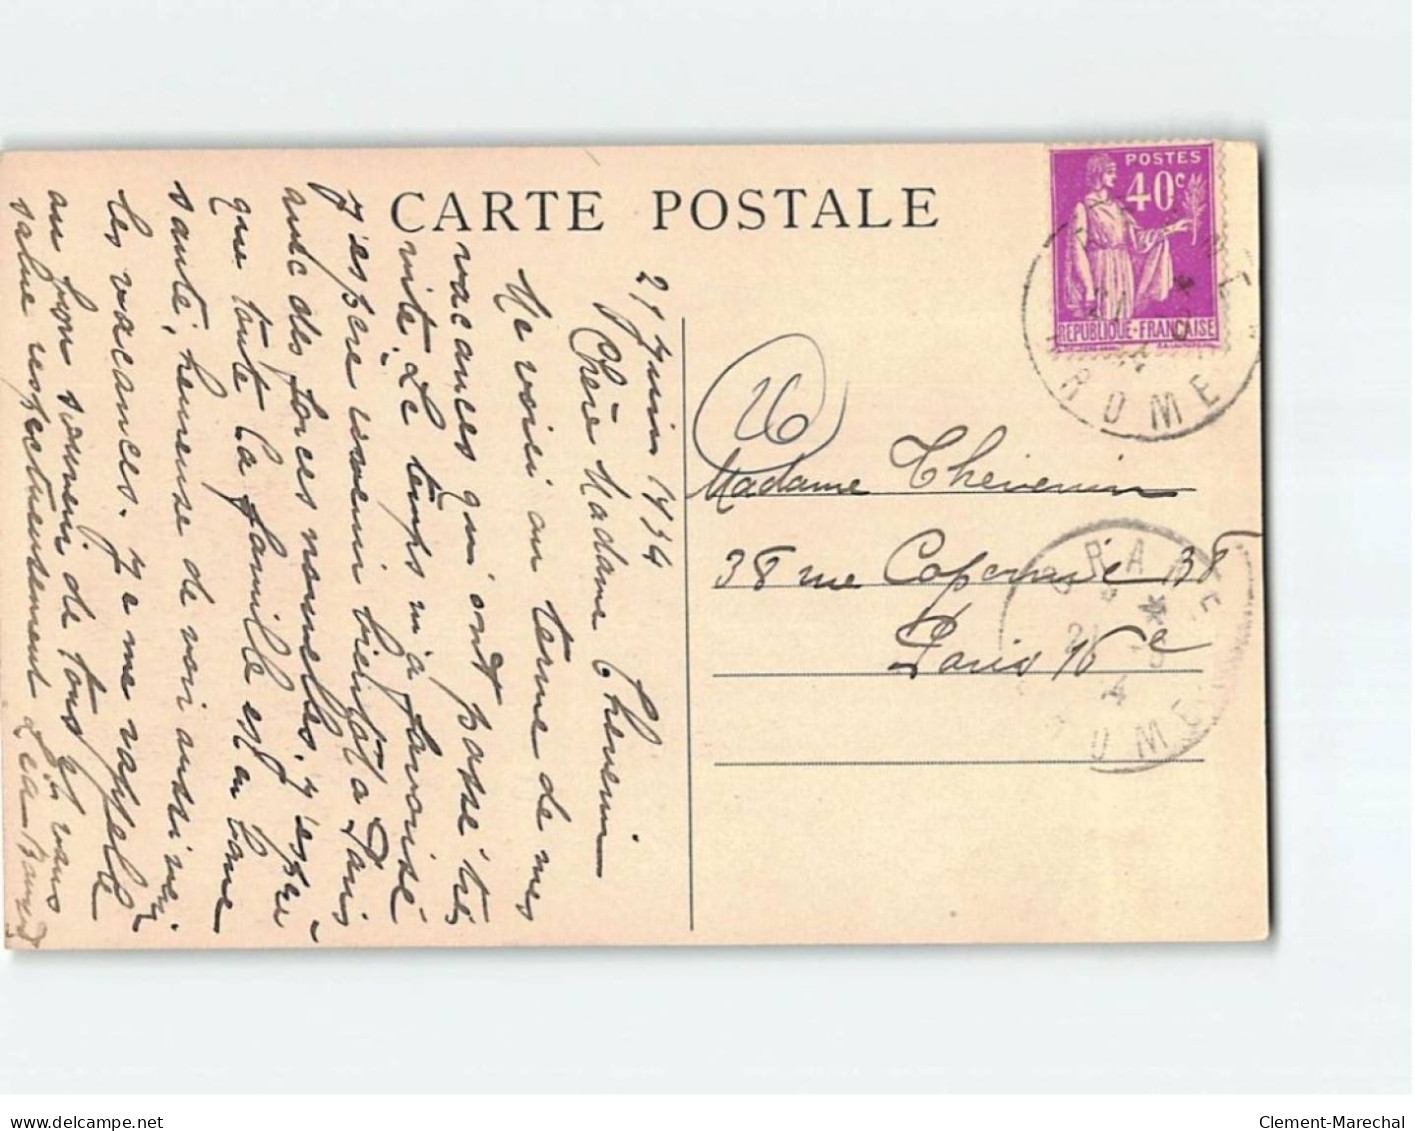 CARTE POSTALE
21 Juin 1934
Chère Madame Thevenin
Me voici au terme de mes
vacances qui ont passé très
vite. Le temps m'a favorisé
J'espère revenir bientôt à Paris
avec des forces nouvelles. J'espère
que toute la famille est en bonne
santé, heureuse de voir aussi venir
les vacances. Je me rappelle
au bon souvenir de tous et vous
salue respectueusement Léa
POSTES
40c
REPUBLIQUE·FRANÇAISE
DROME
26
Madame Thevenin
38 rue Copernic 38
Paris 16e
GRANE
21
DROME
www.delcampe.net
Clement-Marechal